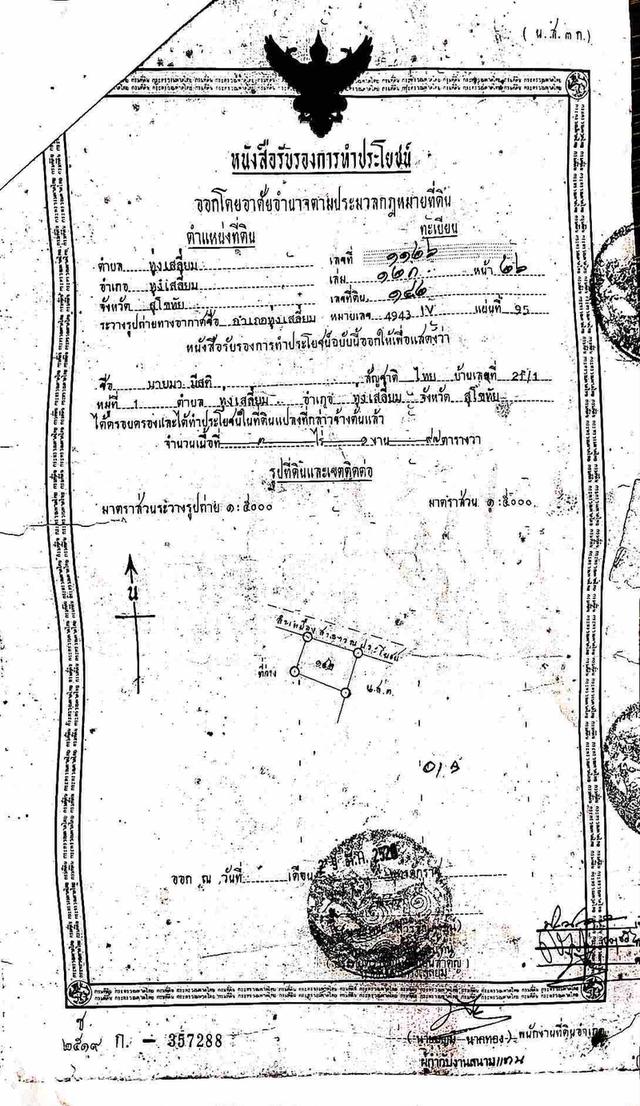 ( น.ส.๓ ก.)
หนังสือรับรองการทำประโยชน์
ออกโดยอาศัยอำนาจตามประมวลกฎหมายที่ดิน
ตำแหน่งที่ดิน ทะเบียน
ตำบล ทุ่งเสลี่ยม เลขที่ ๑๑๒๖
อำเภอ ทุ่งเสลี่ยม เล่ม ๑๒ก หน้า ๒๖
จังหวัด สุโขทัย เลขที่ดิน ๑๔๒
ระวางรูปถ่ายทางอากาศชื่อ อำเภอทุ่งเสลี่ยม หมายเลข 4943 IV แผ่นที่ 95
หนังสือรับรองการทำประโยชน์ฉบับนี้ออกให้เพื่อแสดงว่า
ชื่อ นายมา มีสติ สัญชาติ ไทย บ้านเลขที่
หมู่ที่ 1 ตำบล ทุ่งเสลี่ยม อำเภอ ทุ่งเสลี่ยม จังหวัด สุโขทัย
ได้ครอบครองและได้ทำประโยชน์ในที่ดินแปลงที่กล่าวข้างต้นแล้ว
จำนวนเนื้อที่ ๓ ไร่ ๑ งาน ๙๗ ตารางวา
รูปที่ดินและเขตติดต่อ
มาตราส่วนระวางรูปถ่าย ๑:๕๐๐๐ มาตราส่วน ๑:๕๐๐๐
น
สาธารณประโยชน์
๑๔๒
ที่ว่าง
น.ส.๓
ออก ณ วันที่ เดือน
ช
๒๕๑๙ ก. - 357288
นาคทอง ) พนักงานที่ดินอำเภอ
ผู้กำกับงานสนาม